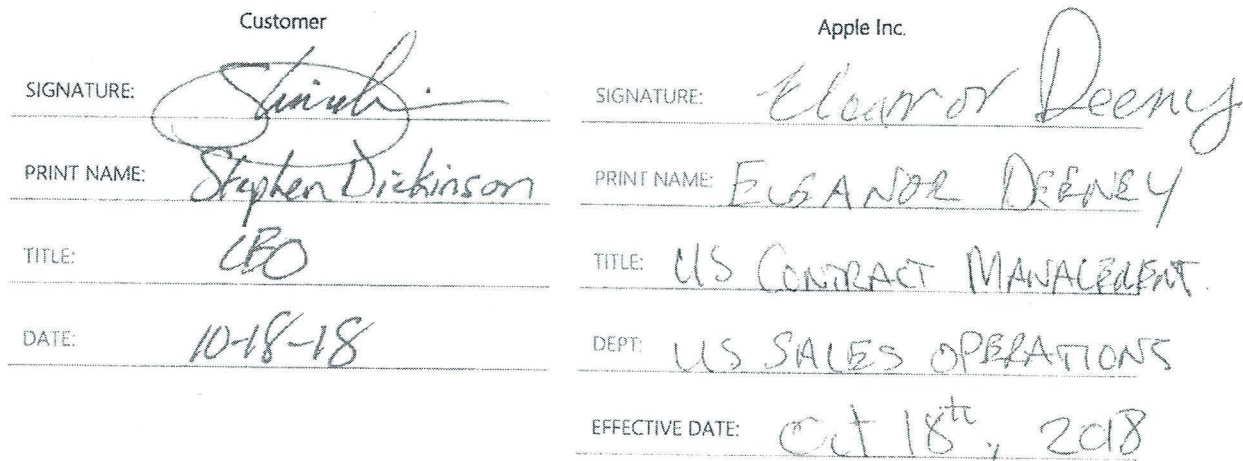 Customer
SIGNATURE:
PRINT NAME: Stephen Dickinson
TITLE: CBO
DATE: 10-18-18
Apple Inc.
SIGNATURE: Eleanor Deeny
PRINT NAME: ELEANOR DEENEY
TITLE: US CONTRACT MANAGEMENT.
DEPT: US SALES OPERATIONS
EFFECTIVE DATE: Oct 18th, 2018